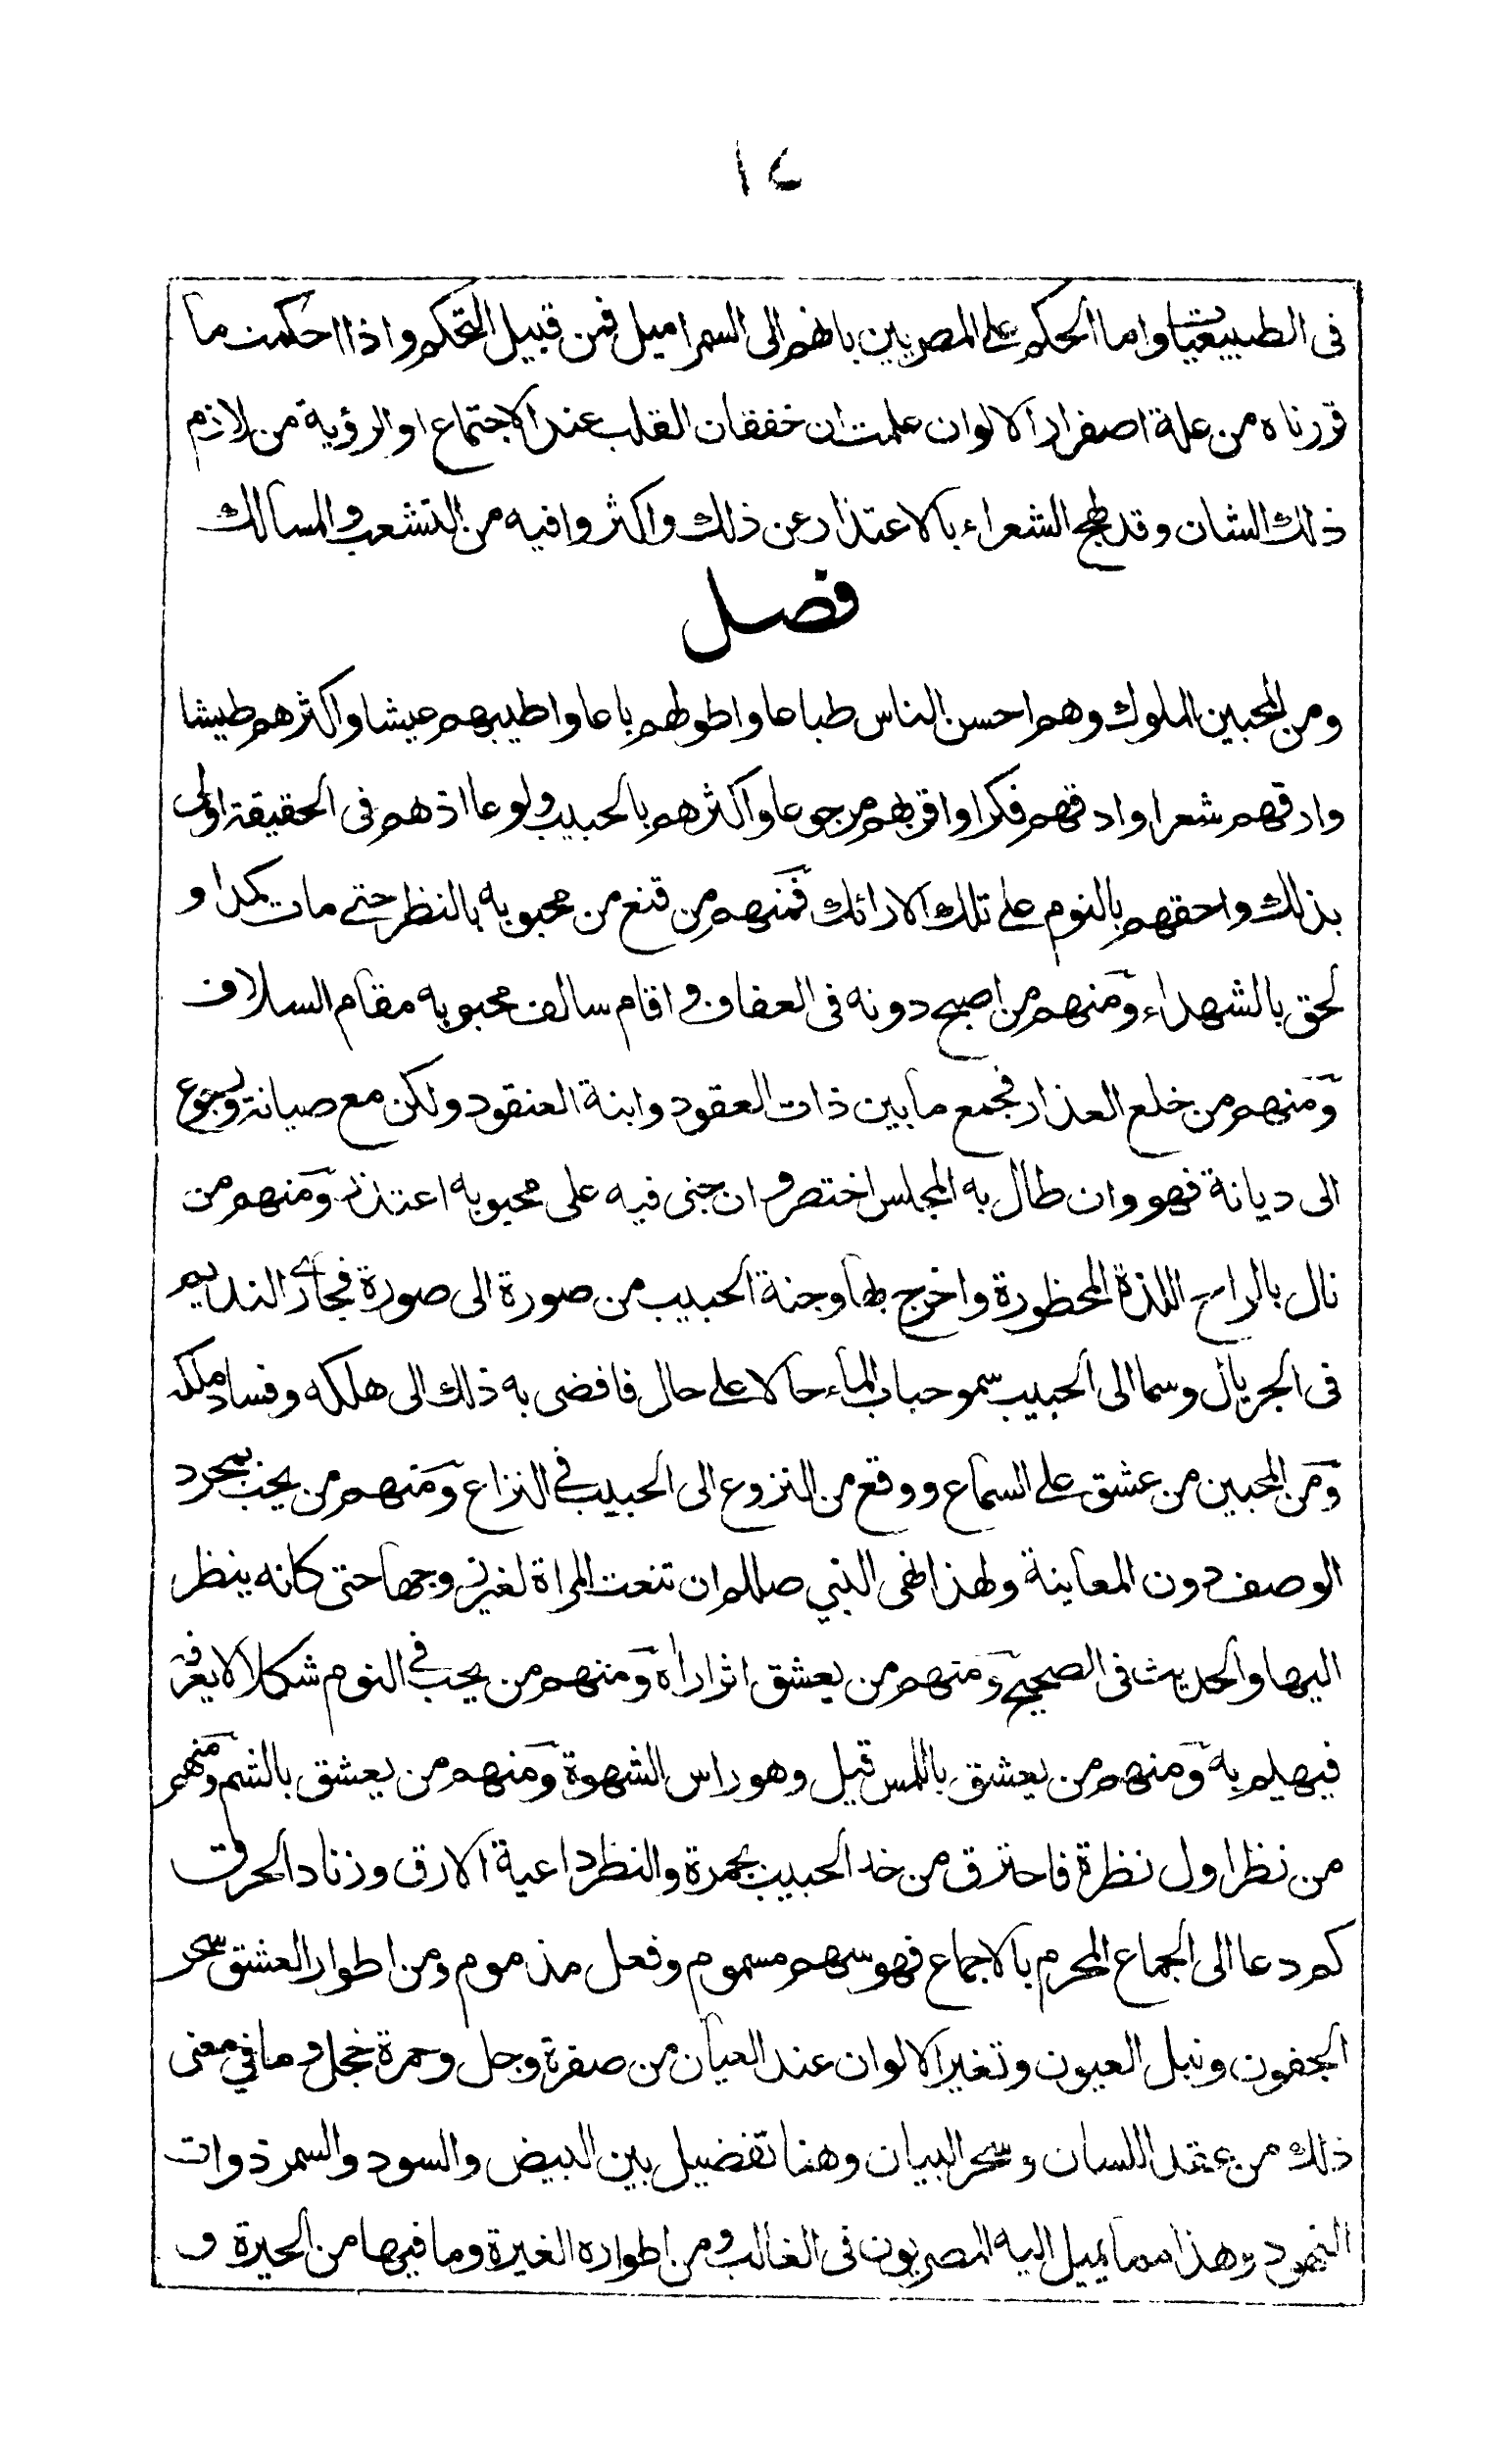 ١٤
فى الطبيعيات واما الحكم على المصريين بانهم الى السمر اميل فمن قبيل التحكم واذا احكمت ما
قررناه من علة اصفرار الالوان علمت ان خفقان القلب عند الاجتماع او الرؤية من لازم
ذلك الشان وقد لهج الشعراء بالاعتذار عن ذلك واكثروا فيه من التشعب والمسالك
فصل
ومن المحبين الملوك وهم احسن الناس طباعا واطولهم باعا واطيبهم عيشا واكثرهم طيشا
وارقهم شعرا وادقهم فكرا واقربهم مرجوعا واكثرهم بالحبيب ولوعا اذهم فى الحقيقة اولى
بذلك واحقهم بالنوم على تلك الارائك فمنهم من قنع من محبوبه بالنظر حتى مات كمدا و
لحق بالشهداء ومنهم من اصبح دونه فى العفاف و اقام سالف محبوبه مقام السلاف
ومنهم من خلع العذار فجمع ما بين ذات العقود وابنة العنقود ولكن مع صيانة ورجوع
الى ديانة فهو وان طال به المجلس اختصر و ان جنى فيه على محبوبه اعتذر ومنهم من
نال بالراح اللذة المحظورة واخرج بها وجنة الحبيب من صورة الى صورة فجارى النديم
فى الجريال وسما الى الحبيب سمو حباب الماء حالا على حال فافضى به ذلك الى هلكه وفساد ملكه
ومن المحبين من عشق على السماع ووقع من النزوع الى الحبيب فى النزاع ومنهم من يحب بمجرد
الوصف دون المعاينة ولهذا نهى النبي صللم ان تنعت المراة لغير زوجها حتى كانه ينظر
اليها والحديث فى الصحيح ومنهم من يعشق اثرا راه ومنهم من يحب فى النوم شكلا لا يعرفه
فيهيم به ومنهم من يعشق باللمس قيل وهو راس الشهوة ومنهم من يعشق بالشم ومنهم
من نظر اول نظرة فاحترق من خد الحبيب بجمرة والنظر داعية الارق وزناد الحرق
كم دعا الى الجماع المحرم بالاجماع فهو سهم مسموم وفعل مذموم ومن اطوار العشق سحر
الجفون ونبل العيون وتغير الالوان عند العيان من صفرة وجل وحمرة خجل و ما في معنى
ذلك من عقد اللسان وسحر البيان وهنا تفضيل بين البيض والسود والسمر ذوات
النهود وهذا مما يميل اليه المصريون فى الغالب ومن اطواره الغيرة وما فيها من الحيرة و